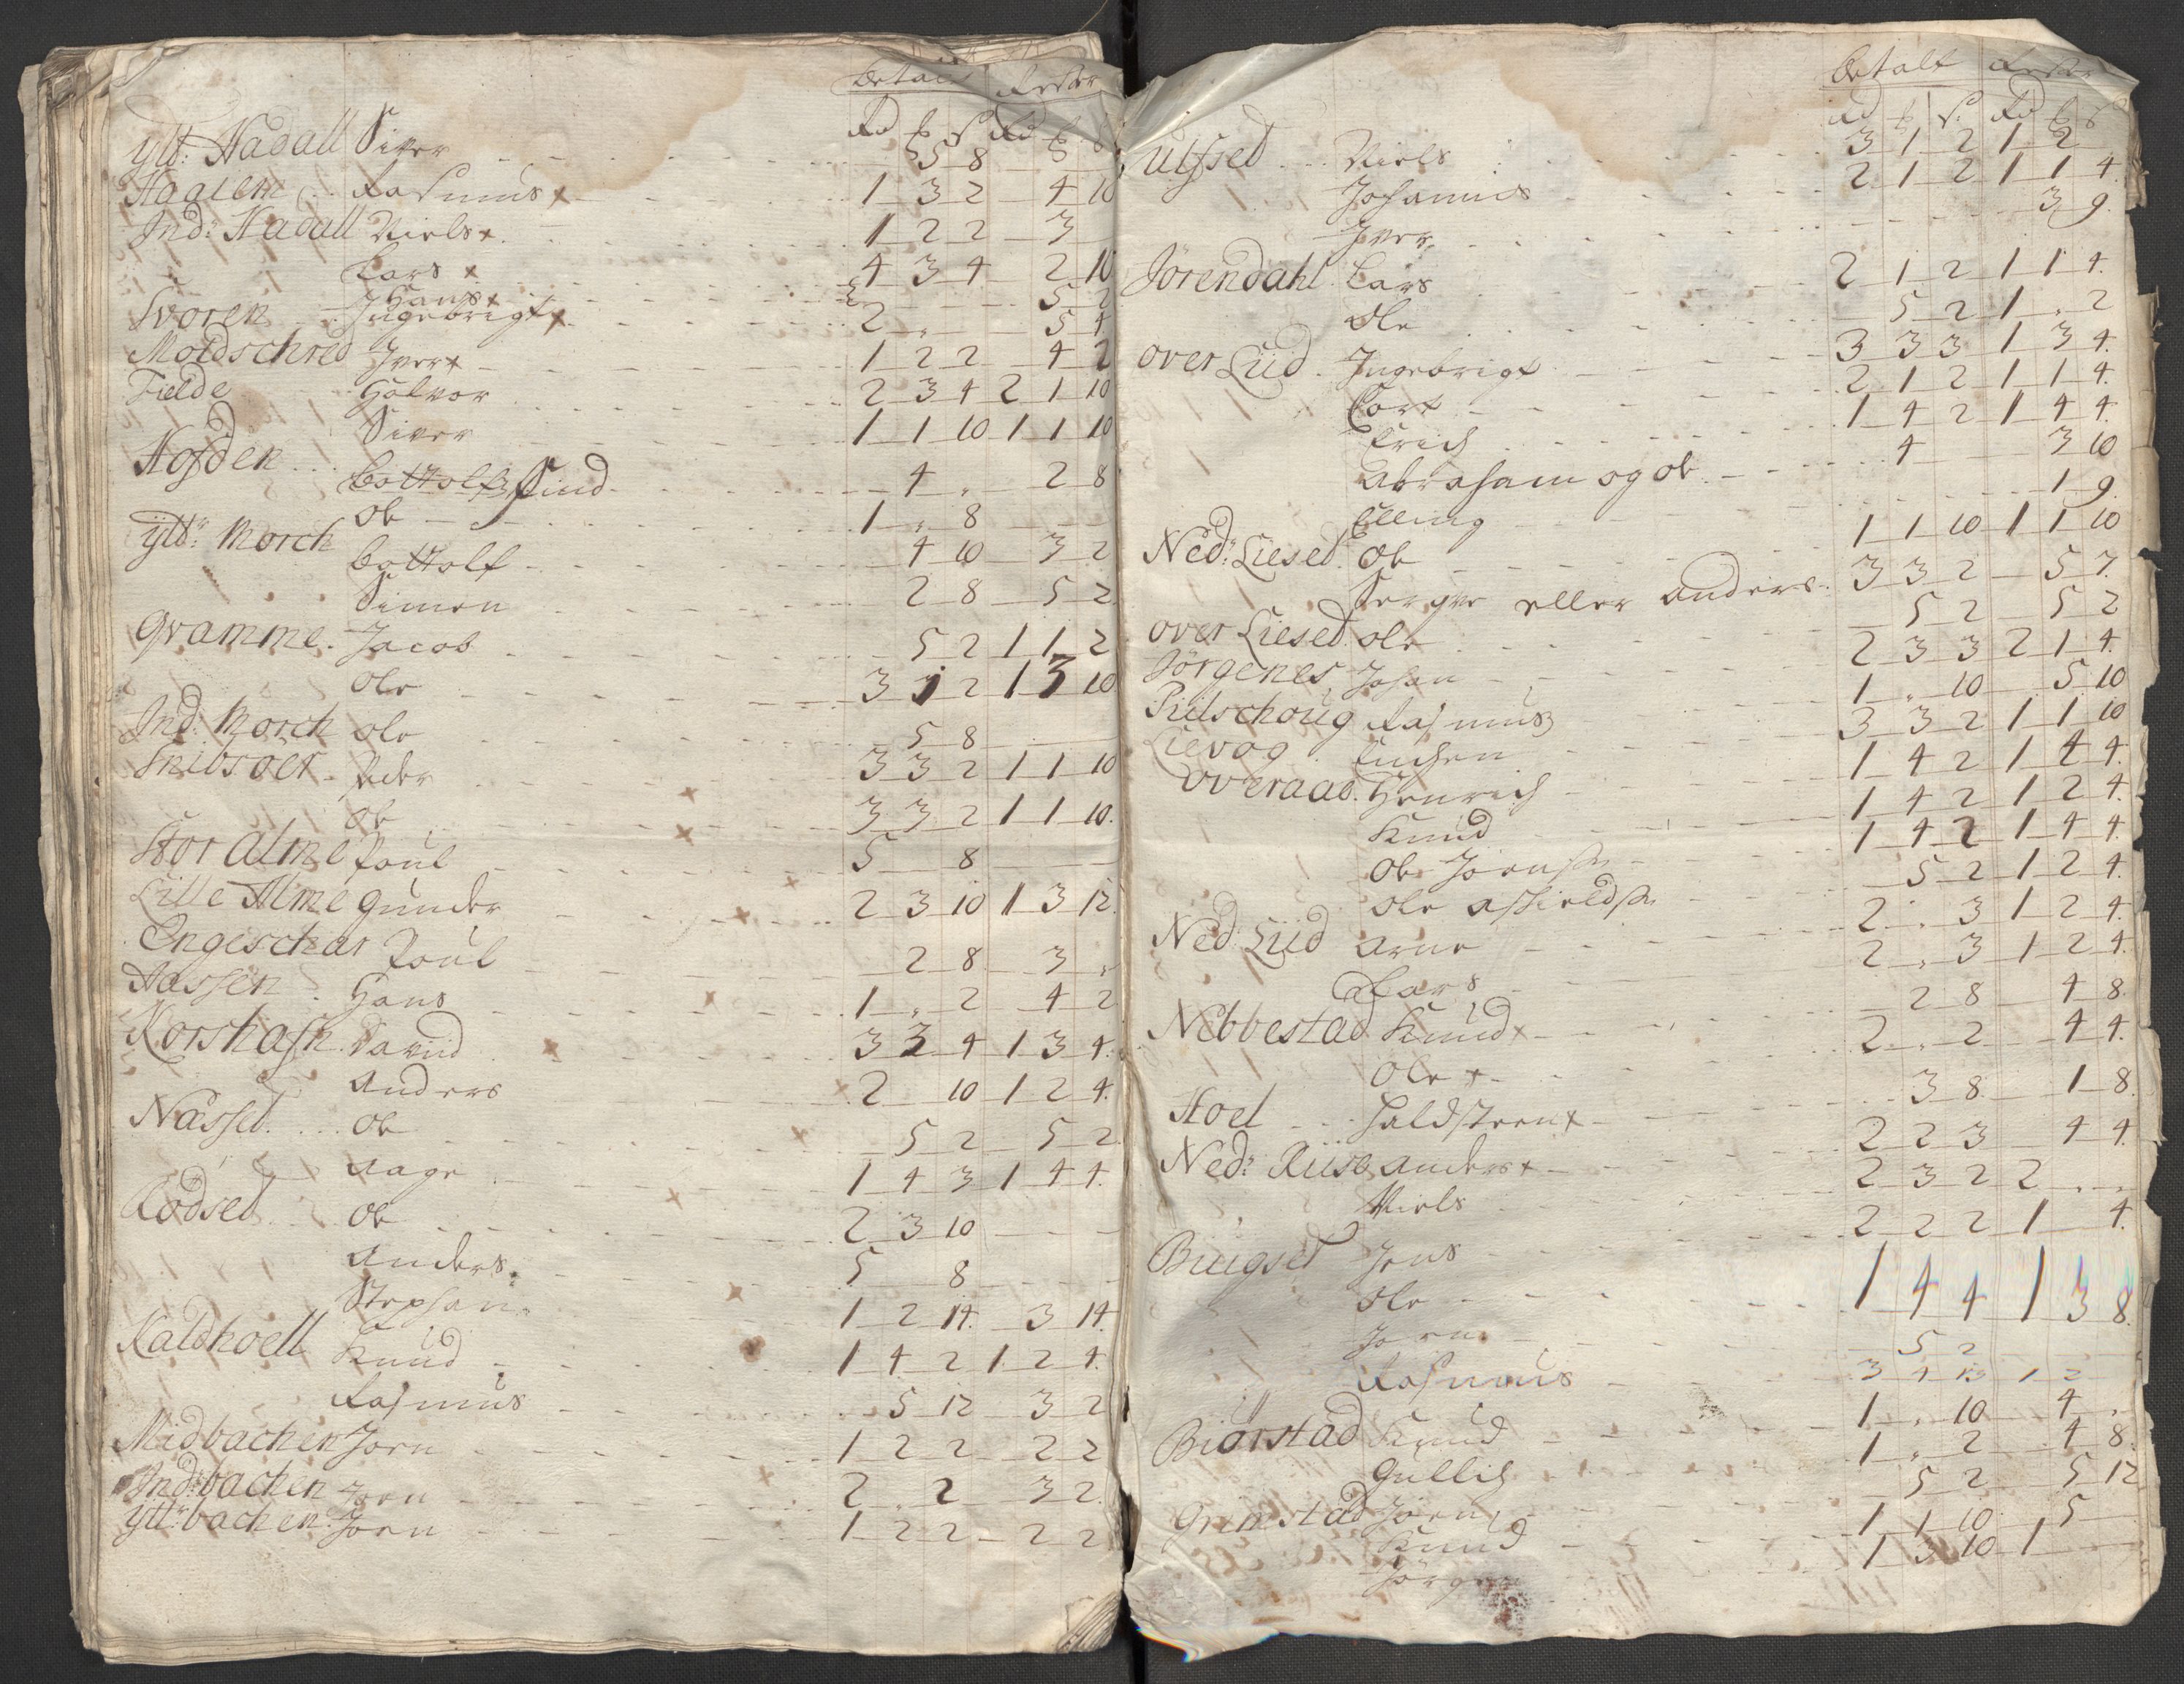 betalt Rester
Rd ȼ s Rd ȼ s
ÿtt: Hadall Siver 5 8
Haalem Rasmus x 1 3 2 4 10
Ind: Hadall Niels x 1 2 2 3
Lars x 4 3 4 2 10
Hans x 5 2
Svoren Ingebrigt x 2 5 4
Moldschred Iver x 1 2 2 4 2
Fielde Halvor 2 3 4 2 1 10
Siver 1 1 10 1 1 10
Hofden Find 4 2 8
Ole 1 8
ÿtt: Morch Bottolf 4 10 3 2
Simen 2 8 5 2
Gvamme Jacob 5 2 1 1 2
Ole 3 1 2 1 3 10
Ind: Morch Ole 5 8
Snibsöer Peder 3 3 2 1 1 10
Ole 3 3 2 1 1 10
Stor Alme Poul 5 8
Lille Alme Gunder 2 3 10 1 3 12
Engeschar Poul 2 8 3
Aassen Hans 1 2 4 2
Korshafn David 3 3 4 1 3 4
Anders 2 10 1 2 4
Næssed Ole 5 2 5 2
Aage 1 4 3 1 4 4
Rödsed Ole 2 3 10
Anders 5 8
Stephan 1 2 14 3 14
Kaldhoell Knud 1 4 2 1 2 4
Rasmus 5 12 3 2
Midbachen Jorn 1 2 2 2 2
Ind: bachen Jorn 2 2 3 2
ÿtt: bachen Jorn 1 2 2 2 2
betalt Rester
Rd ȼ s Rd ȼ s
Ulfsed Niels 3 1 2 1 2
Johannes 2 1 2 1 1 4
Iver 3 9
Jörendahl Lars 2 1 2 1 1 4
Ole 5 2 1 2
over Liid Ingebrigt 3 3 3 1 3 4
Cort 2 1 2 1 1 4
Erich 1 4 2 1 4 4
Abraham og Ole 4 3 10
Elling 1 9
Ned: Liesed Ole 1 1 10 1 1 10
eller Anders 3 3 2 5 7
over Liesed Ole 5 2 5 2
Jörgenes Johan 2 3 3 2 1 4
Pilschoug Rasmus 1 10 5 10
Lievog 3 3 2 1 1 10
overaae Henrich 1 4 2 1 4 4
Knud 1 4 2 1 2 4
Ole Jörnss: 1 4 2 1 4 4
Ole 5 2 1 2 4
Ned Liid Arne 2 3 1 2 4
Lars 2 3 1 2 4
Nebbestad Knud x 2 8 4 8
Ole x 2 2 4 4
Hoel Haldsteen x 3 8 1 8
Ned: Riise Anders x 2 2 3 4 4
Niels 2 3 2 2
Buugsed Jens 2 2 2 1 4
Ole 1 4 4 1 3 8
Jorn 5 2
Rasmus 3 4 13 1 2
Biorstad Knud 1 10 4
Gullich 1 2 4 8
Grimstad Jorn 5 2 5 12
Knud 1 1 10 5
Jörgen 1 3 10 1